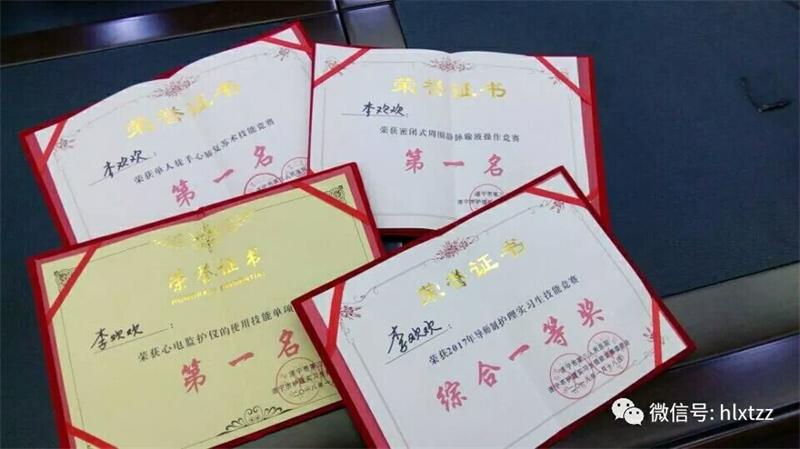 荣誉证书
李欢欢:
荣获单人徒手心肺复苏术技能竞赛
第一名
荣誉证书
李欢欢:
荣获密闭式周围静脉输液操作竞赛
第一名
遂宁市第
荣誉证书
李欢欢:
荣获心电监护仪的使用技能单项
第一名
遂宁市第
荣誉证书
李欢欢:
荣获2017年导师制护理实习生技能竞赛
综合一等奖
遂宁市第
微信号: hlxtzz